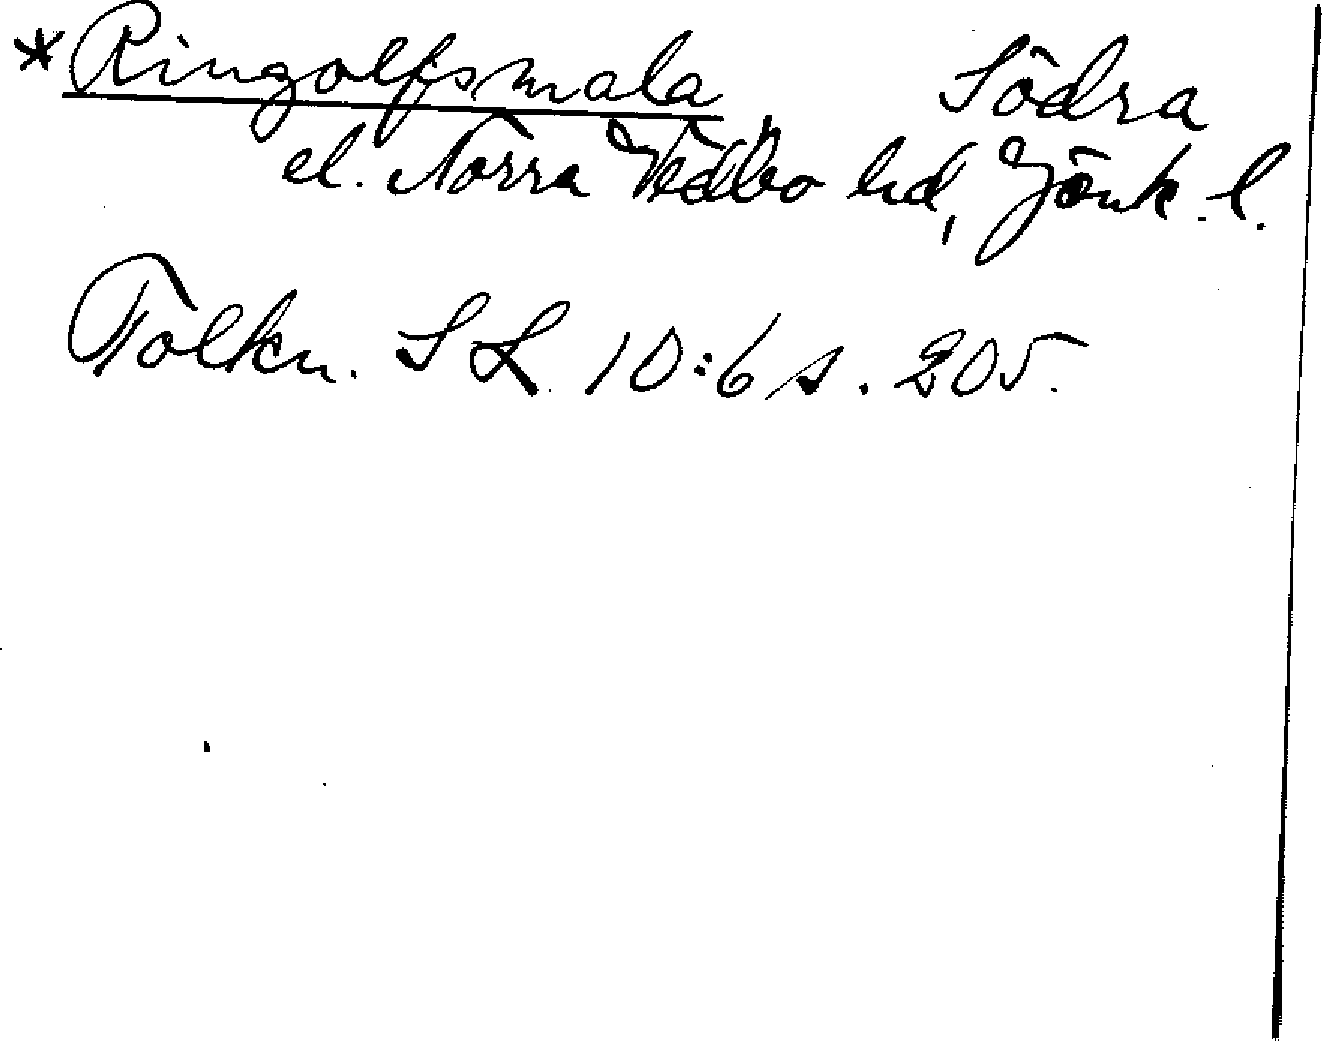 *Ringolfsmala Södra
el. Norra Vedbo hd, Jönk. l.
Folkn. SL 10:6 s. 205.